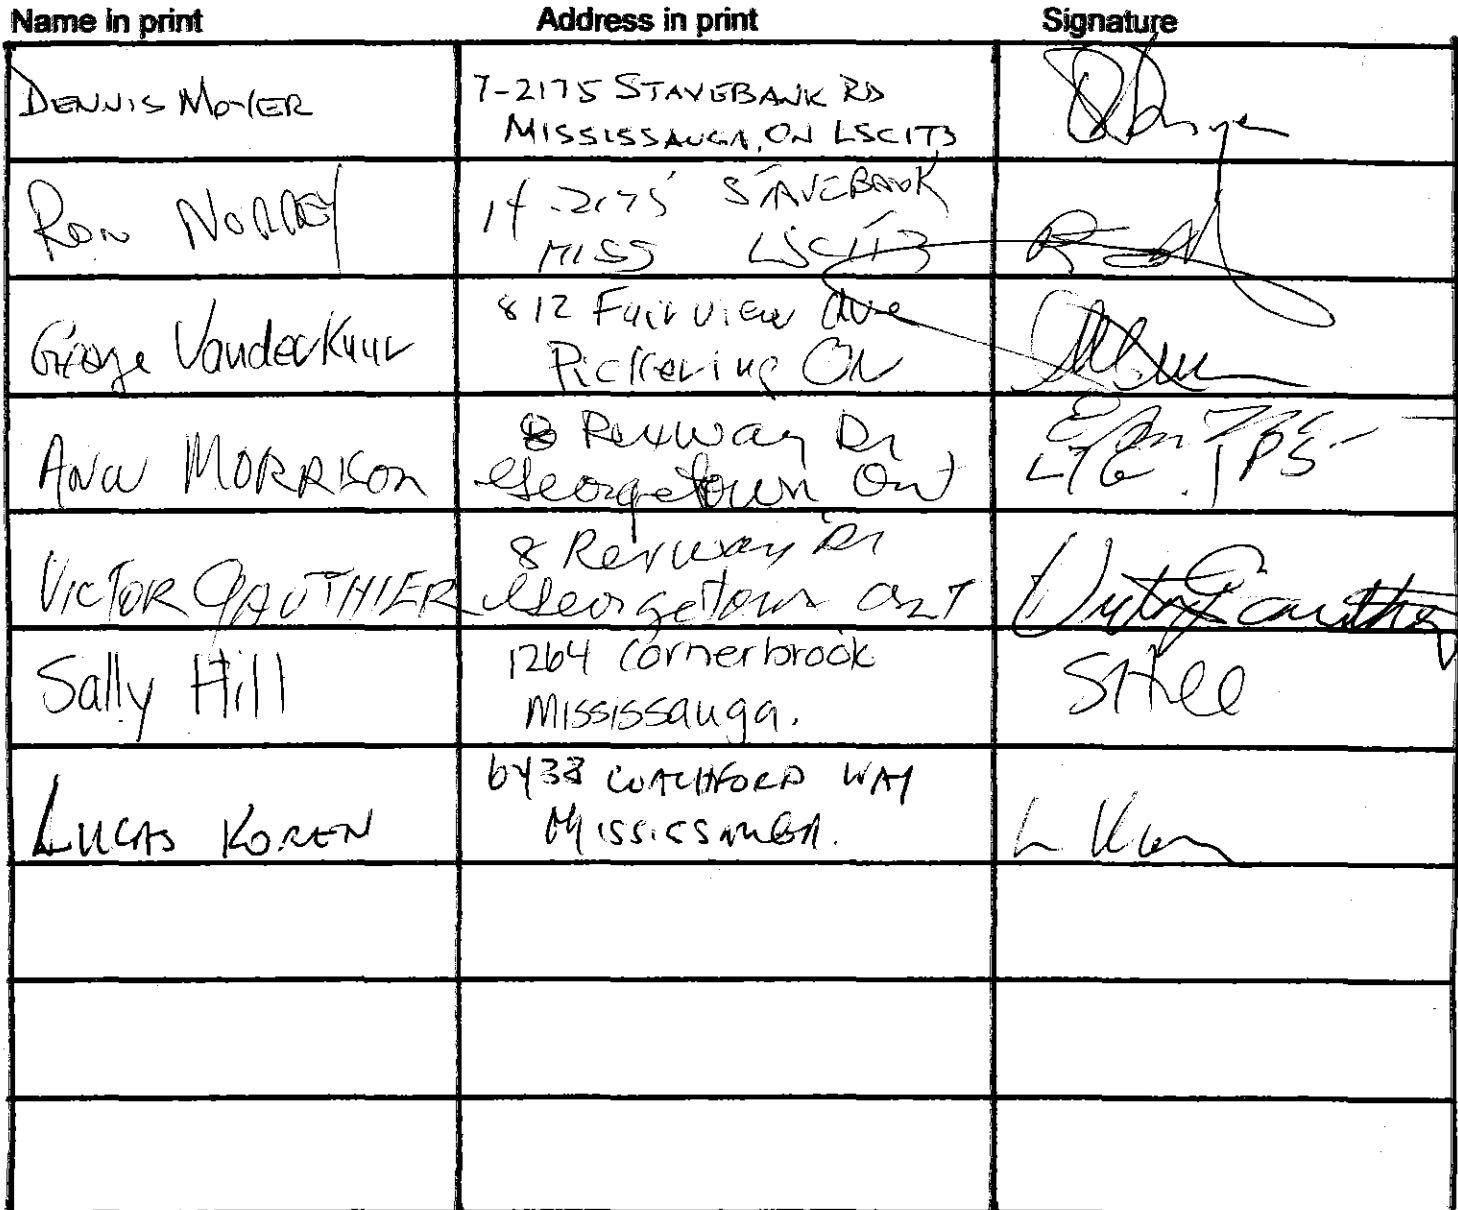 Name in print Address in print Signature
DENNIS MOYER 7-2175 STAVEBANK RD
MISSISSAUGA, ON L5C1T3
RON NORREY 14-2175 STAVEBANK
MISS L5C1T3
George VanderKuur 812 Fairview Ave
Pickering ON
ANN MORRISON 8 Rexway Dr
Georgetown Ont
VICTOR GAUTHIER 8 Rexway Dr
Georgetown ONT Victor Gauthier
Sally Hill 1264 Cornerbrook
Mississauga. SHill
LUCAS KOREN 6438 WAY
MISSISSAUGA. L K